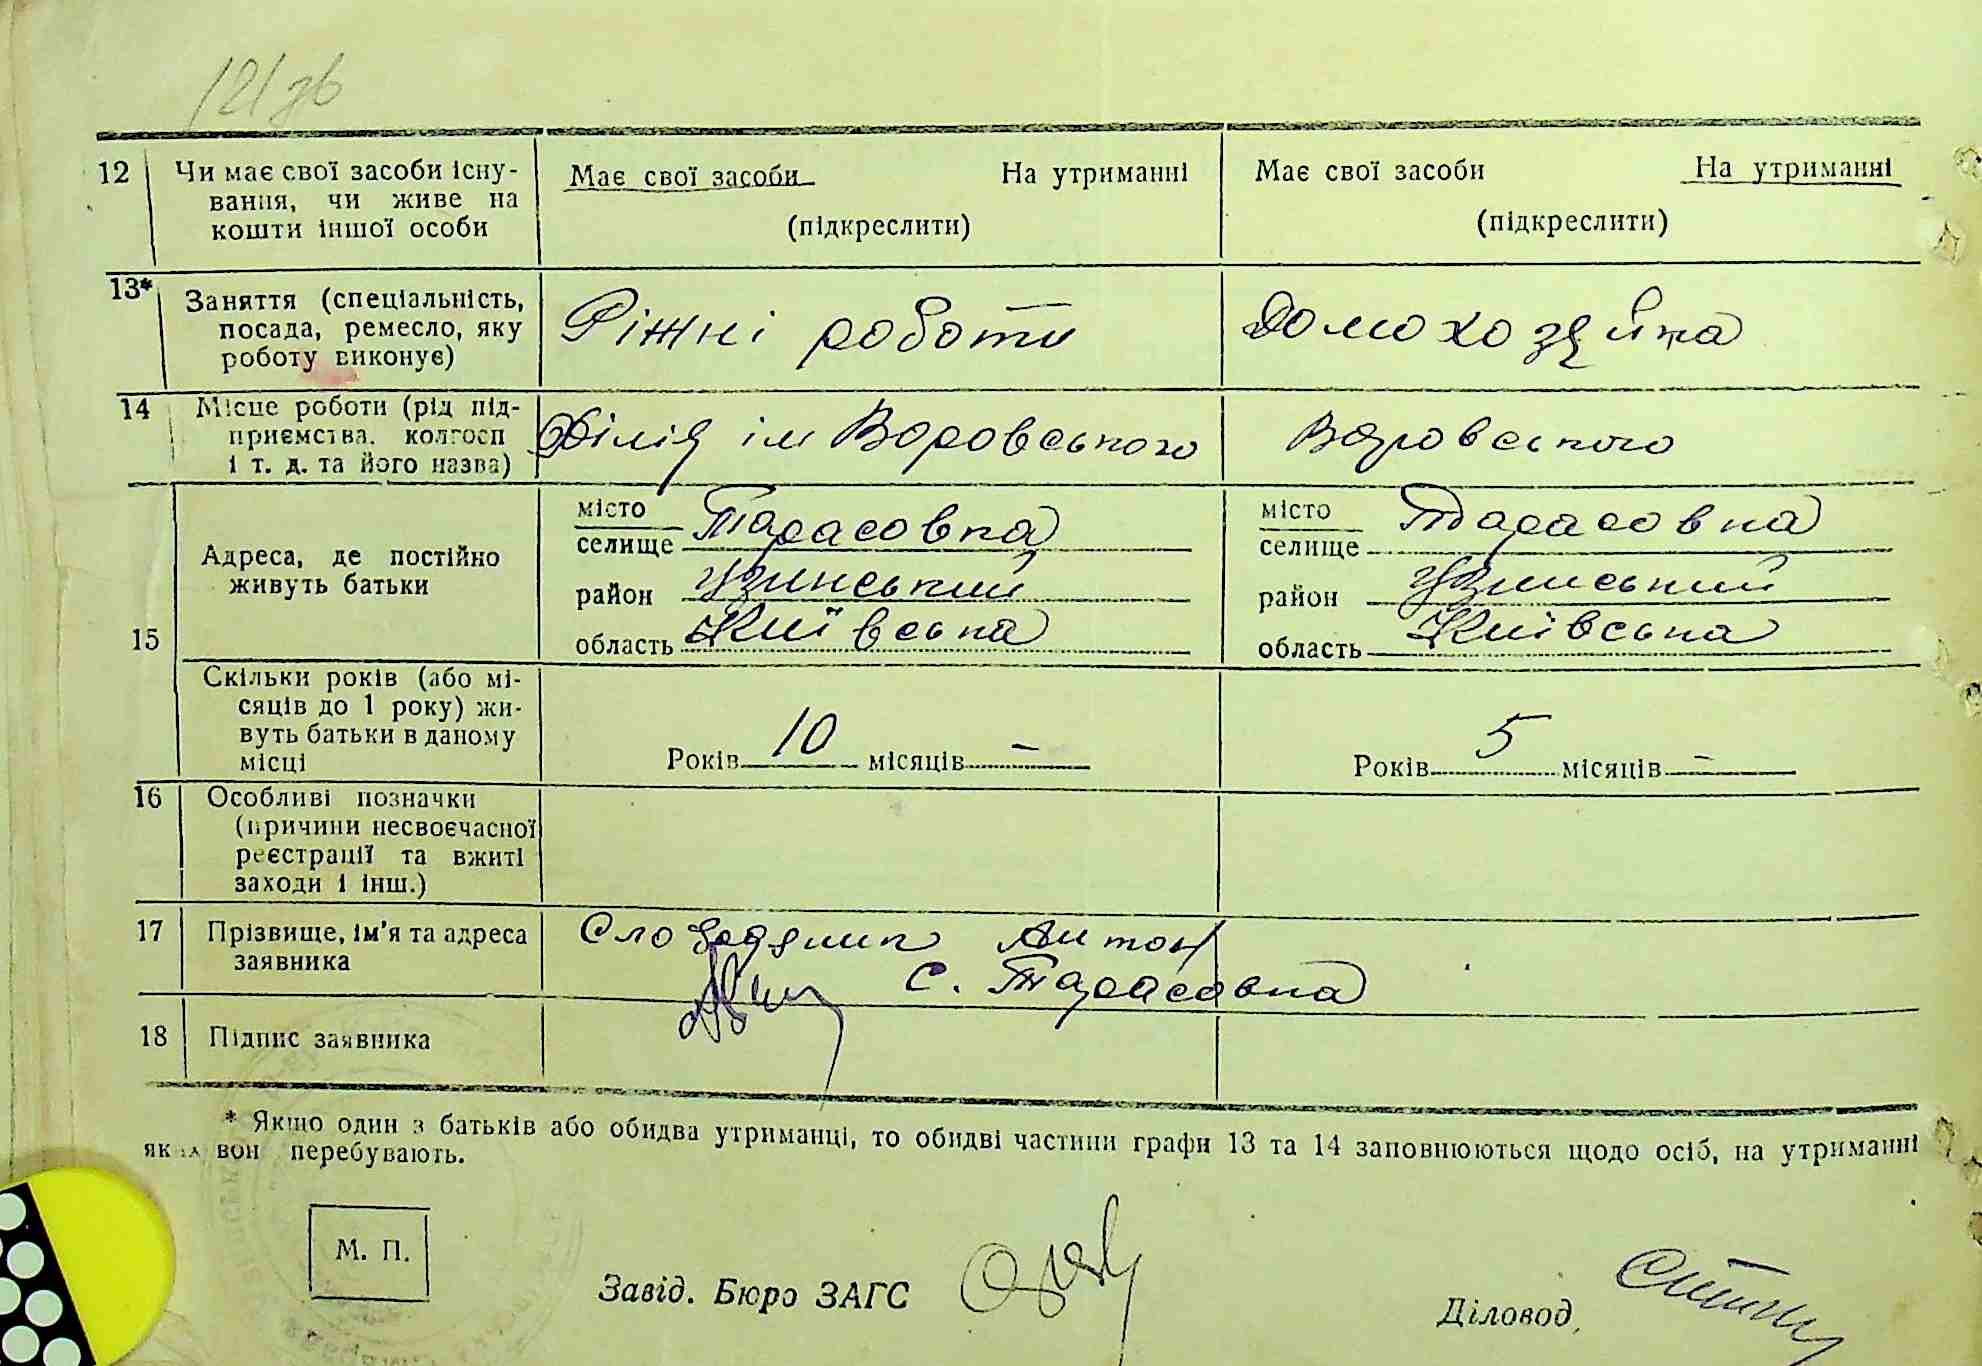 121 зв
12 Чи має свої засоби існу- Має свої засоби На утриманні Має свої засоби На утриманні
вання, чи живе на (підкреслити) (підкреслити)
кошти іншої особи
13* Заняття (спеціальність, Ріжні роботи Домохозяйка
посада, ремесло, яку
роботу виконує)
14 Місце роботи (рід під- Філія ім Воровського Воровського
приємства. колгосп
і т. д. та його назва)
15 Адреса, де постійно живуть батьки
місто селище Тарасовка місто селище Тарасовка
район Узинський район Узинський
область Київська область Київська
Скільки років (або мі-
сяців до 1 року) жи-
вуть батьки в даному
місці
Років 10 місяців – Років 5 місяців –
16 Особливі позначки
(причини несвоєчасної
реєстрації та вжиті
заходи і інш.)
17 Прізвище, ім'я та адреса Слободяник Антон
заявника с. Тарасовка
18 Підпис заявника
* Якщо один з батьків або обидва утриманці, то обидві частини графи 13 та 14 заповнюються щодо осіб, на утриманні
яких вон перебувають.
М. П.
Завід. Бюро ЗАГС
Діловод